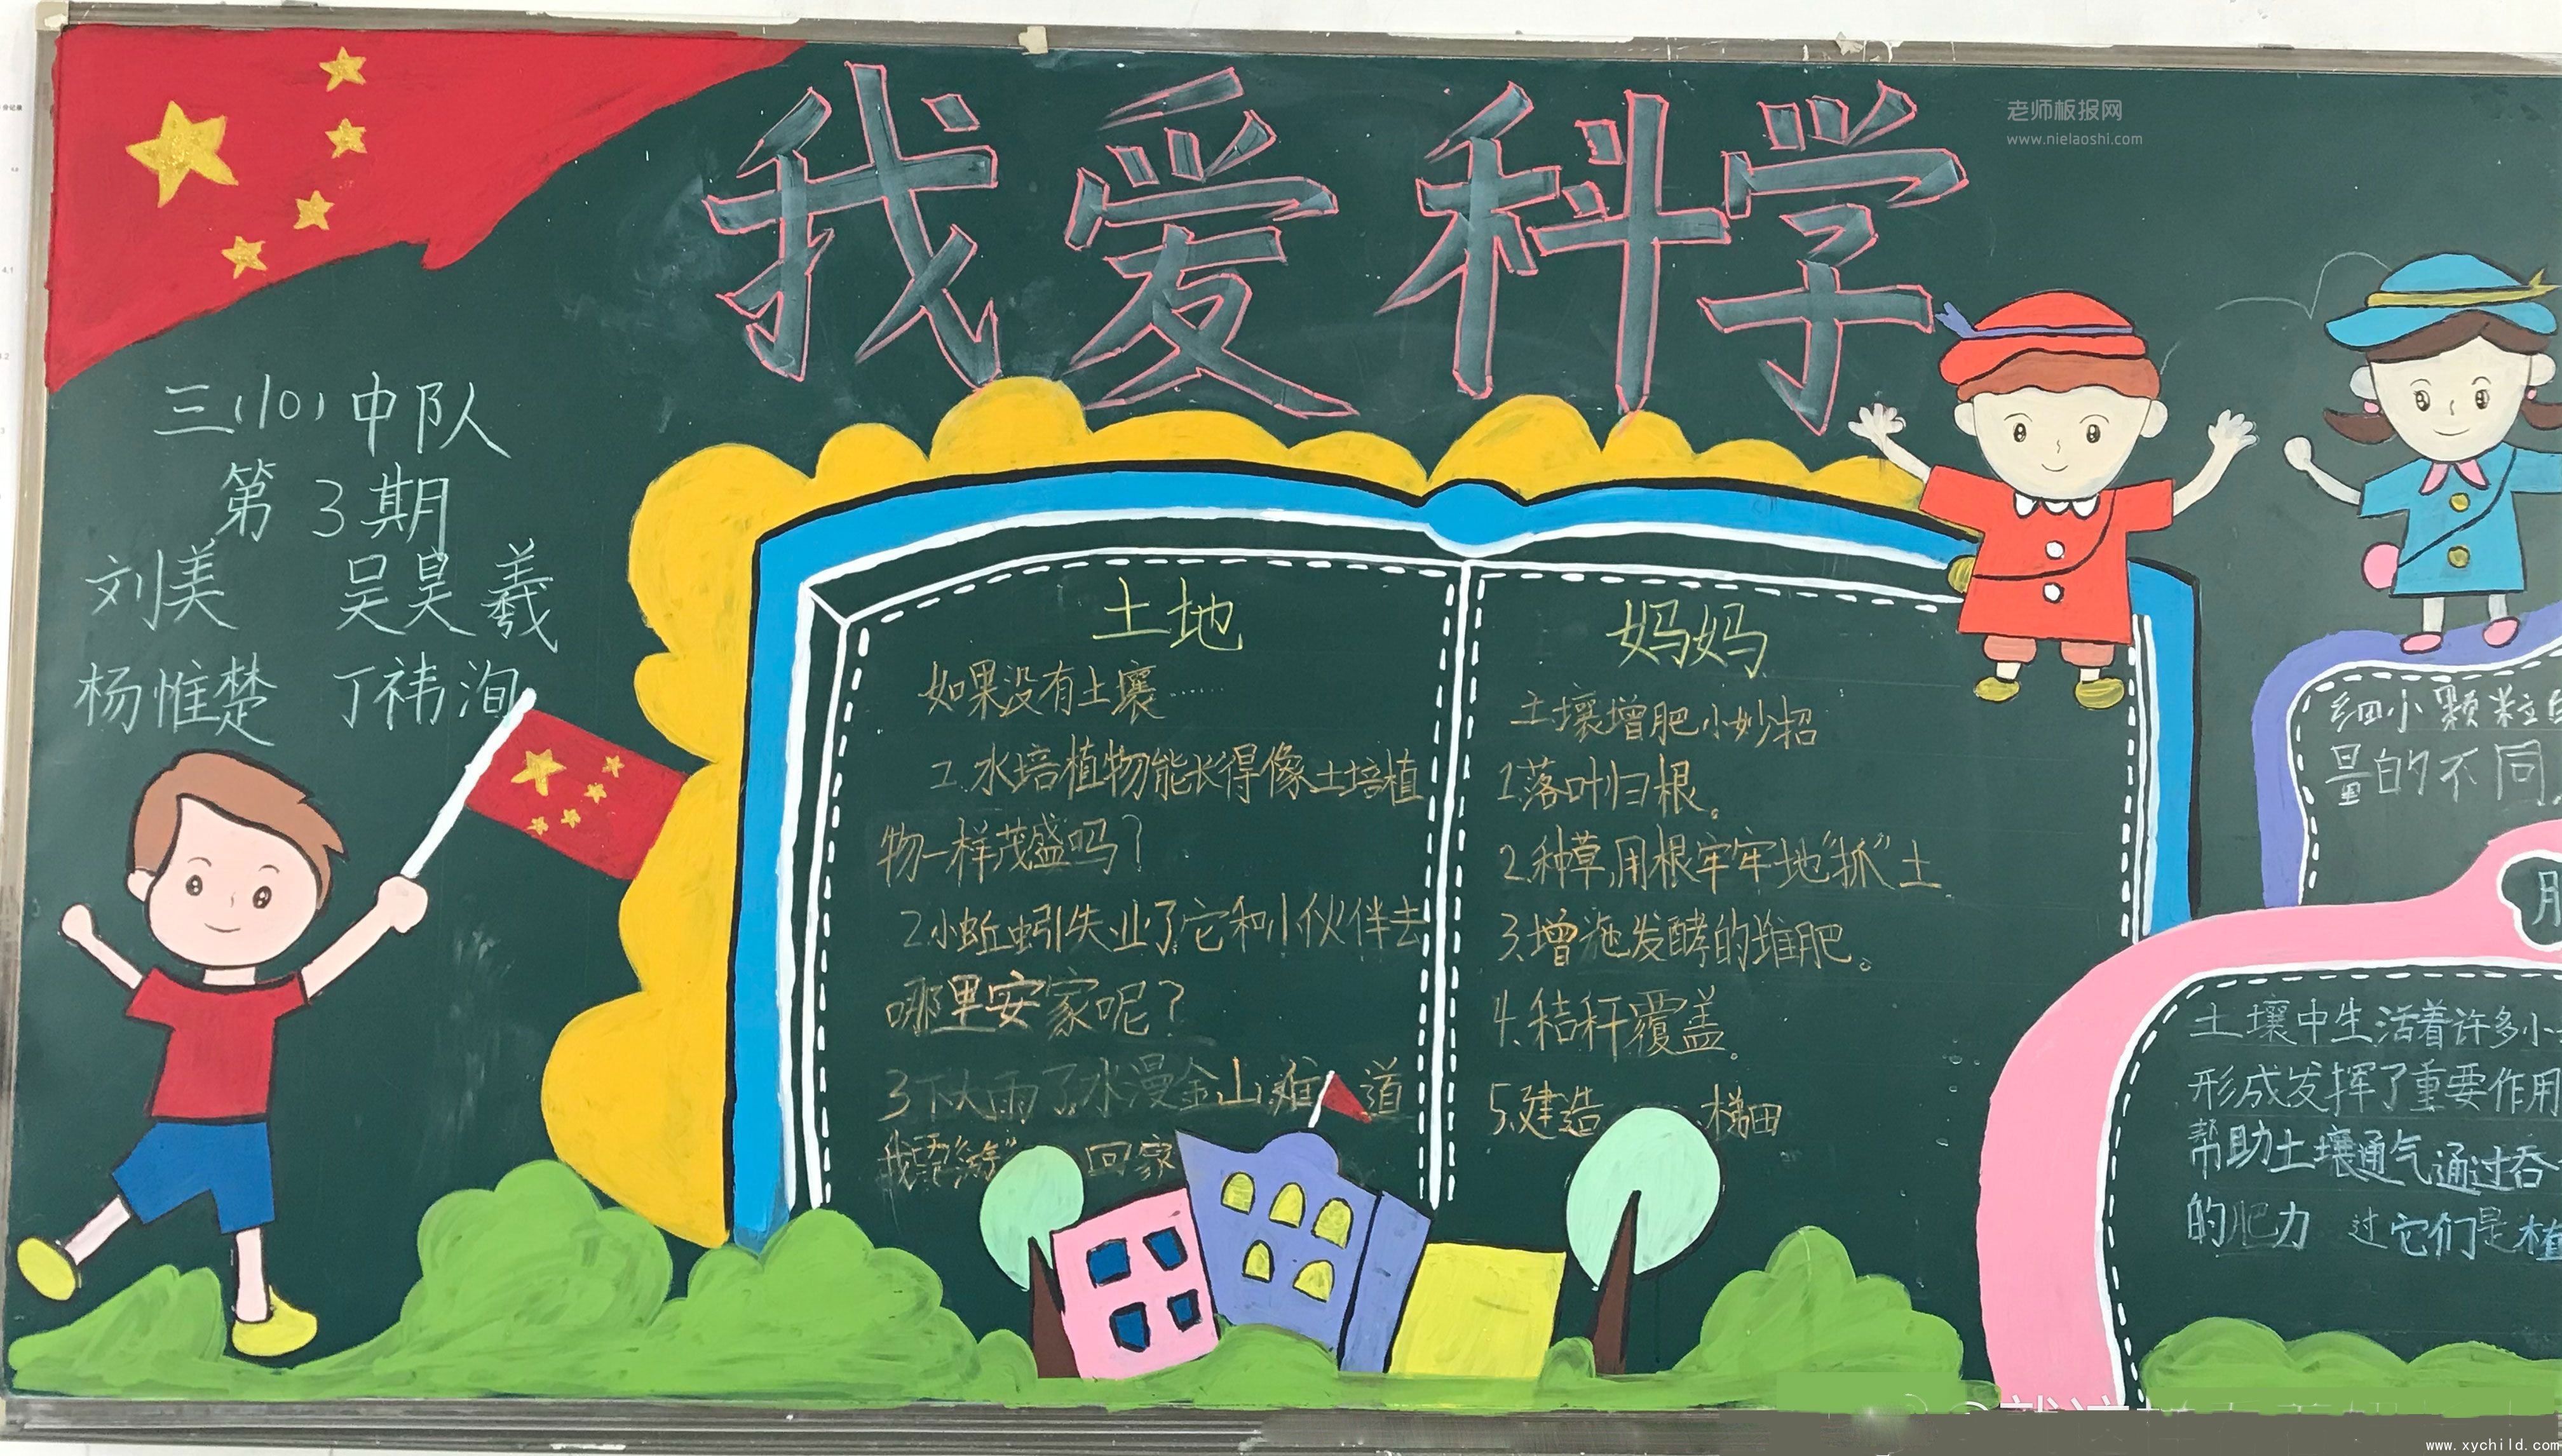 我爱科学
老师板报网
www.nielaoshi.com
三(10)中队
第3期
刘美 吴昊羲
杨惟楚 丁祎洵
土地
如果没有土壤……
1.水培植物能长得像土培植
物一样茂盛吗?
2.小蚯蚓失业了,它和小伙伴去
哪里安家呢?
3下大雨了水漫金山,难道
我要“游” 回家
妈妈
土壤增肥小妙招
1.落叶归根。
2.种草,用根牢牢地“抓”土
3.增施发酵的堆肥。
4.秸秆覆盖。
5.建造 梯田
细小颗粒
量的不同
土壤中生活着许多小
形成发挥了重要作用
帮助土壤通气通过吞
的肥力 过它们是植
www.xychild.com